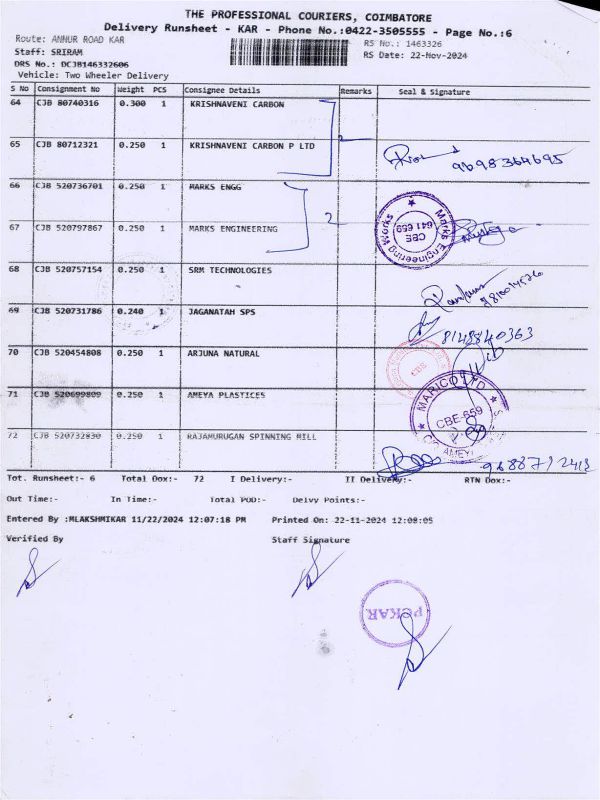 THE PROFESSIONAL COURIERS, COIMBATORE
Delivery Runsheet - KAR - Phone No.:0422-3505555 - Page No.:6
Route: ANNUR ROAD KAR
RS No.: 1463326
Staff: SRIRAM
RS Date: 22-Nov-2024
DRS No.: DCJB146332606
Vehicle: Two Wheeler Delivery
S No Consignment No Weight PCS Consignee Details Remarks Seal & Signature
64 CJB 80740316 0.300 1 KRISHNAVENI CARBON
2
65 CJB 80712321 0.250 1 KRISHNAVENI CARBON P LTD
9698364695
66 CJB 520736701 0.250 1 MARKS ENGG
2
67 CJB 520797867 0.250 1 MARKS ENGINEERING
Marks Engineering Works
CBE
641 659
68 CJB 520757154 0.250 1 SRM TECHNOLOGIES
69 CJB 520731786 0.240 1 JAGANATAH SPS
8148840363
70 CJB 520454808 0.250 1 ARJUNA NATURAL
CBE
71 CJB 520699809 0.250 1 AMEYA PLASTICES
MARICO LTD
CBE-659
72 CJB 520732830 0.250 1 RAJAMURUGAN SPINNING MILL
Tot. Runsheet:- 6 Total Dox:- 72 I Delivery:- II Delivery:- RTN Dox:-
Out Time:- In Time:- Total POD:- Delvy Points:-
Entered By :MLAKSHMIKAR 11/22/2024 12:07:18 PM Printed On: 22-11-2024 12:08:05
Verified By Staff Signature
PCKAR